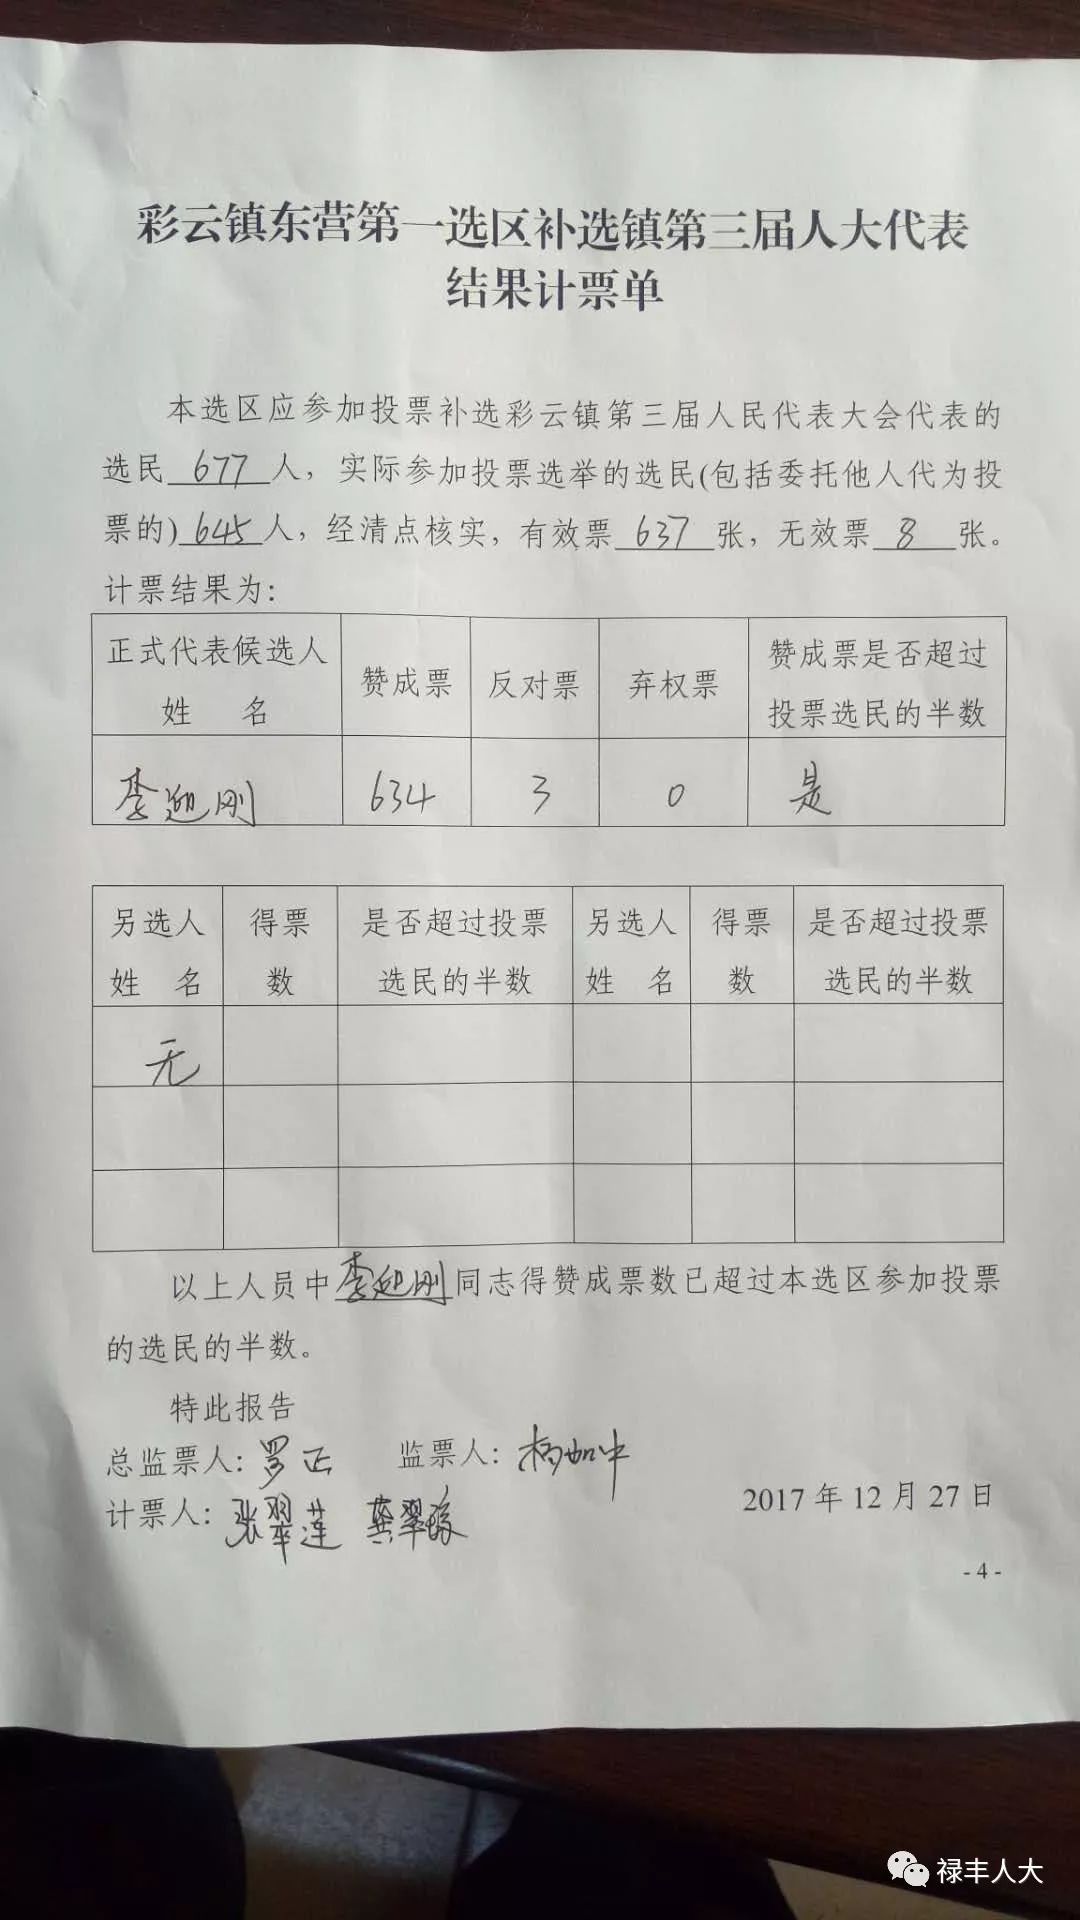 彩云镇东营第一选区补选镇第三届人大代表
结果计票单
本选区应参加投票补选彩云镇第三届人民代表大会代表的
选民 677 人，实际参加投票选举的选民(包括委托他人代为投
票的) 645 人，经清点核实，有效票 637 张，无效票 8 张。
计票结果为：
正式代表候选人
姓 名
赞成票
反对票
弃权票
赞成票是否超过
投票选民的半数
李迎刚
634
3
0
是
另选人
姓 名
得票
数
是否超过投票
选民的半数
另选人
姓 名
得票
数
是否超过投票
选民的半数
无
以上人员中李迎刚同志得赞成票数已超过本选区参加投票
的选民的半数。
特此报告
总监票人：罗正 监票人：杨如中
计票人：张翠莲 龚翠
2017 年 12 月 27 日
- 4 -
禄丰人大